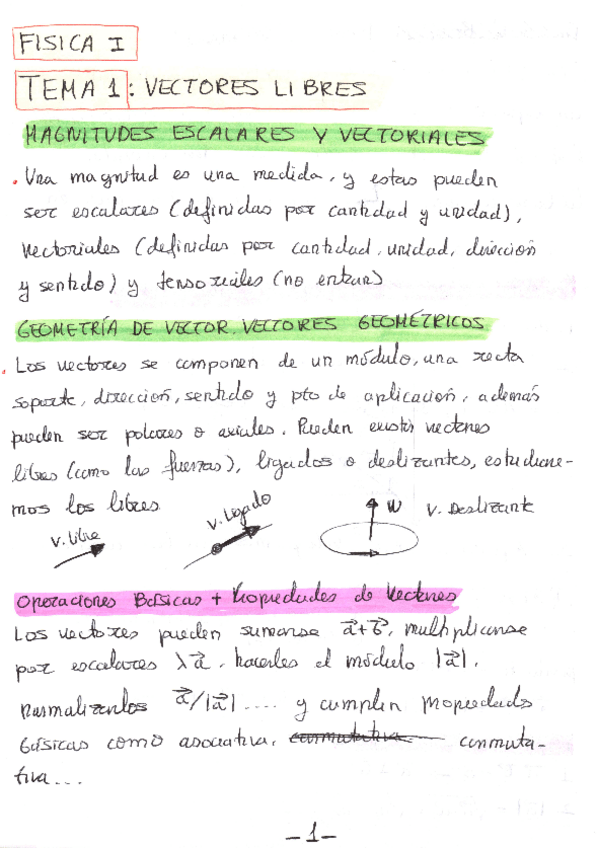 FISICA I
TEMA 1: VECTORES LIBRES
MAGNITUDES ESCALARES Y VECTORIALES
. Una magnitud es una medida, y estas pueden
ser escalares (definidas por cantidad y unidad),
vectoriales (definidas por cantidad, unidad, dirección
y sentido) y tensoriales (no entran)
GEOMETRÍA DE VECTOR. VECTORES GEOMÉTRICOS
. Los vectores se componen de un módulo, una recta
soporte, dirección, sentido y pto de aplicación, además
pueden ser polares o axiales. Pueden existir vectores
libres (como las fuerzas), ligados o deslizantes, estudiare-
mos los libres
V. Libre
V. Ligado
W
V. Deslizante
Operaciones Básicas + Propiedades de Vectores
Los vectores pueden sumarse a⃗+b⃗, multiplicarse
por escalares λa⃗, hacerles el módulo |a⃗|,
normalizarlos a⃗/|a⃗| .... y cumplen propiedads
básicas como asociativa, conmutativa conmuta-
tiva...
-1-